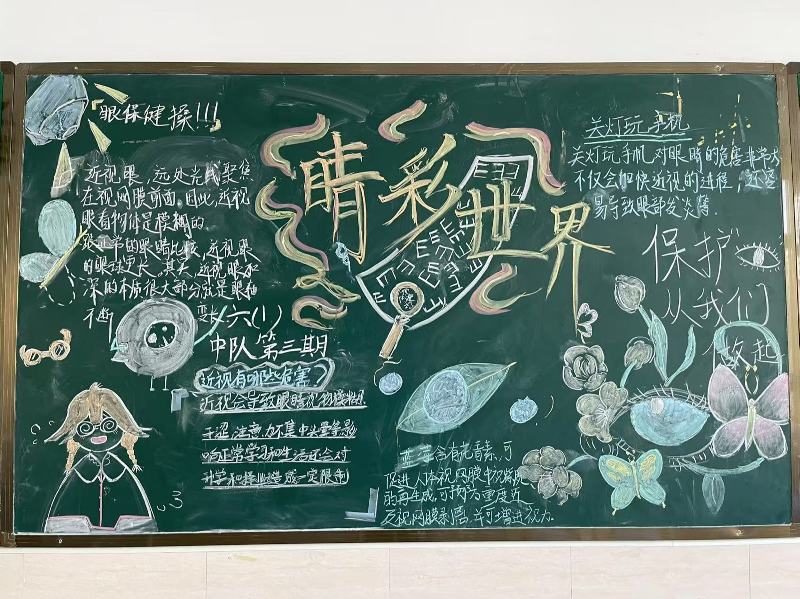 眼保健操!!!
近视眼，远处光线聚焦
在视网膜前面，因此，近视
眼看物体是模糊的
与正常的眼睛比较，近视眼
的眼球更长，其实，近视眼加
深的本质很大部分就是眼轴
不断 变长
六(1)
中队第三期
近视有哪些危害?
近视会导致眼睛
干涩,注意力不集中头晕等影
响正常学习和生活还会对
升学和择业造成一定限制
睛彩世界
关灯玩手机
关灯玩手机,对眼睛的危害非常大
不仅会加快近视的进程，还容
易导致眼部发炎等
保护
从我们
做起
含有花青素,可
促进人体视网膜中视紫质
的再生成,可预防重度近
视视网膜剥离,并可增进视力.